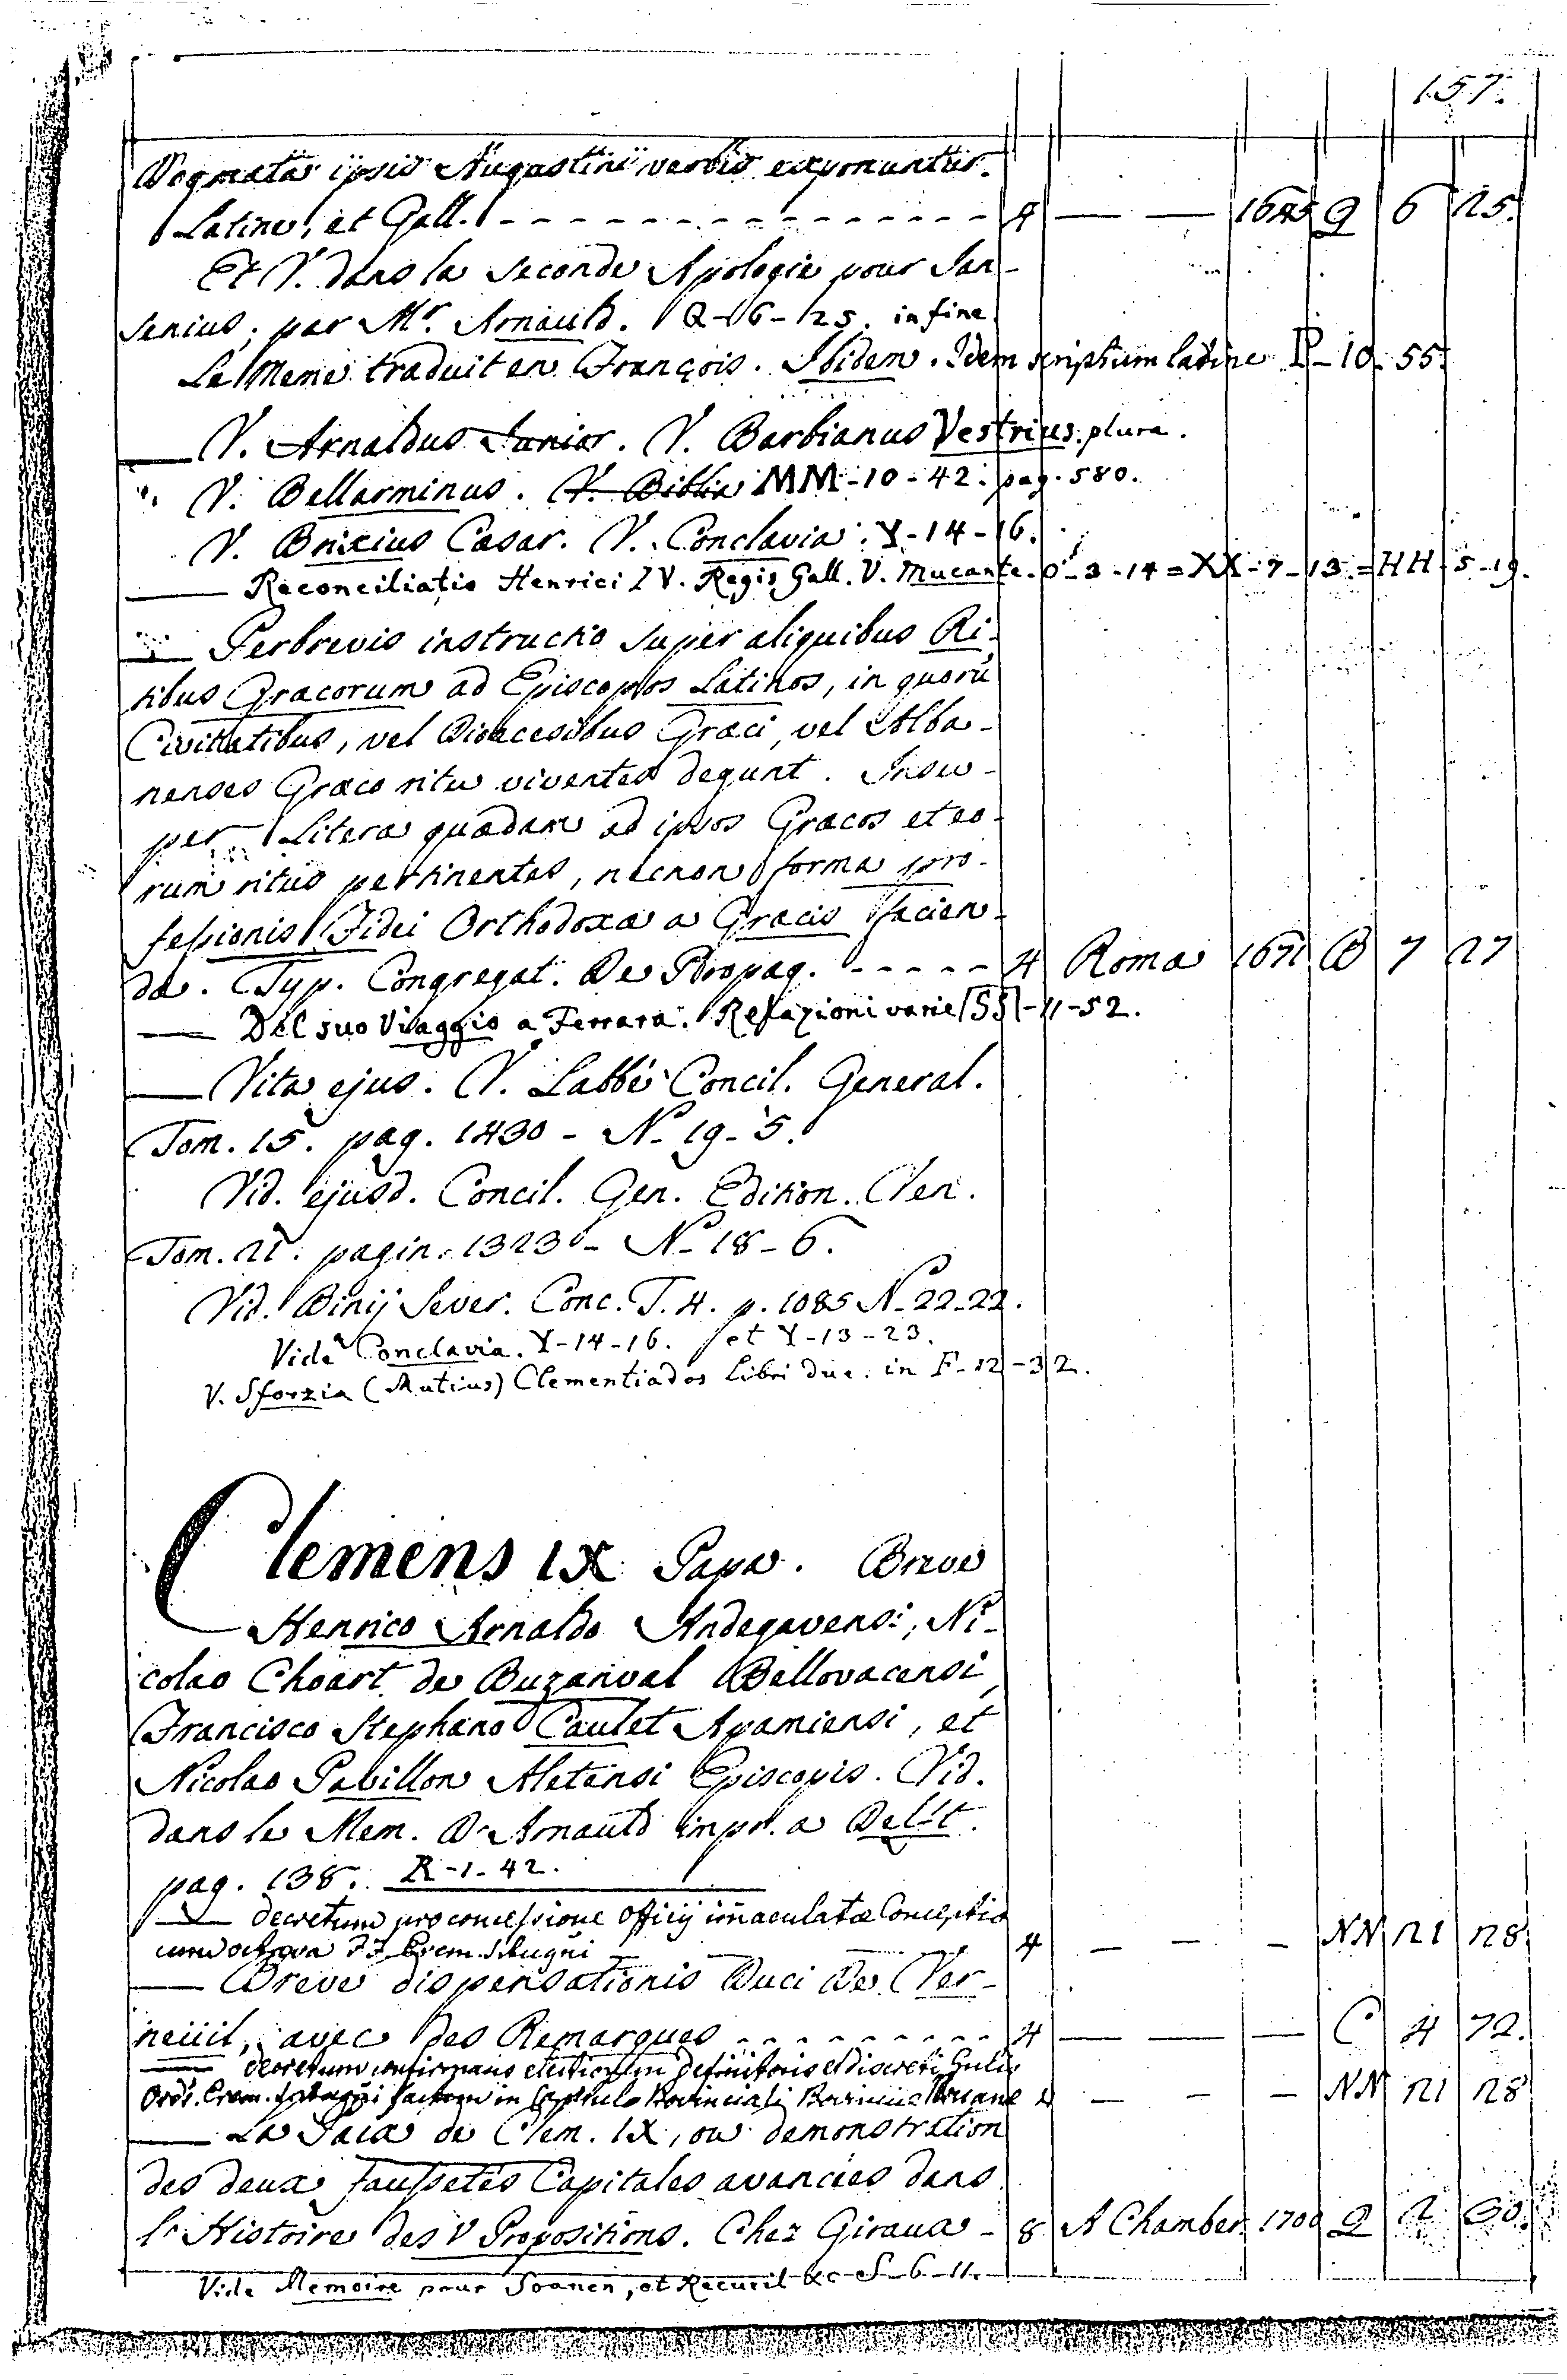 157.
Dogmata ipsis Augustini verbis exponuntur.
Latine, et Gall. - - - - - - - - - - - - - - - 4 — — 1645 Q 6 25.
Et V. dans la seconde Apologie pour Jan-
senius, par Mr. Arnauld. Q-6-25. in fine.
Le Meme traduit en François. Ibidem. Idem scriptum latine P-10-55.
— V. Arnaldus Junior. V. Barbianus Vestrius. plura.
V. Bellarminus. V. Biblia MM-10-42. pag. 580.
V. Brixius Cæsar. V. Conclavia. Y-14-16.
— Reconciliatio Henrici IV. Regis Gall. V. Mucante. O-3-14 = XX-7-13. = HH-5-19.
— Perbrevis instructio super aliquibus Ri-
tibus Græcorum ad Episcopos Latinos, in quorū
Civitatibus, vel Diœcesibus Græci, vel Alba-
nenses Græco ritu viventes degunt. Insu-
per Literæ quædam ad ipsos Græcos et eo-
rum ritus pertinentes, necnon forma pro-
fessionis Fidei Orthodoxæ a Græcis facien-
da. Typ. Congregat. De Propag. - - - - - 4 Romæ 1671 B 7 27
— Del suo Viaggio a Ferrara. Relazioni varie SS-11-52.
— Vita ejus. V. Labbé Concil. General.
Tom. 15. pag. 1430 - N-19-5.
Vid. ejusd. Concil. Gen. Edition. Ven.
Tom. 21. pagin. 1323 - N-18-6.
Vid. Binij Sever. Conc. T. 4. p. 1085 N-22-22.
Vide Conclavia. Y-14-16. et Y-13-23.
V. Sforzia (Mutius) Clementiados Libri duo. in F-12-32.
Clemens IX Papa. Breve
Henrico Arnaldo Andegavensi, Ni-
colao Choart de Buzanval Bellovacensi,
Francisco Stephano Caulet Apamiensi, et
Nicolao Pavillon Aletensi Episcopis. Vid.
dans le Mem. D'Arnauld impr. a Delft.
pag. 138. R-1-42.
— decretum pro concessione officij imaculatæ Conceptio
cum octava FF. Erem. S. Augni 4 — — — NN 21 28
— Breve dispensationis Duci De Ver-
neiiil, avec des Remarques - - - - - - - - - 4 — — — C 4 72.
— decretum confirmans electionem Definitoris et discreti
Ord. Erem. S. Augni factam in Capitulo Provinciali — — NN 21 28
— La Paix de Clem. IX, ou demonstration
des deux faussetés Capitales avancées dans
l'Histoire des V Propositions. Chez Giraux - 8 A Chamber 1700 Q 2 30.
Vide Memoire pour Soanen, et Recueil &c. S-6-11.